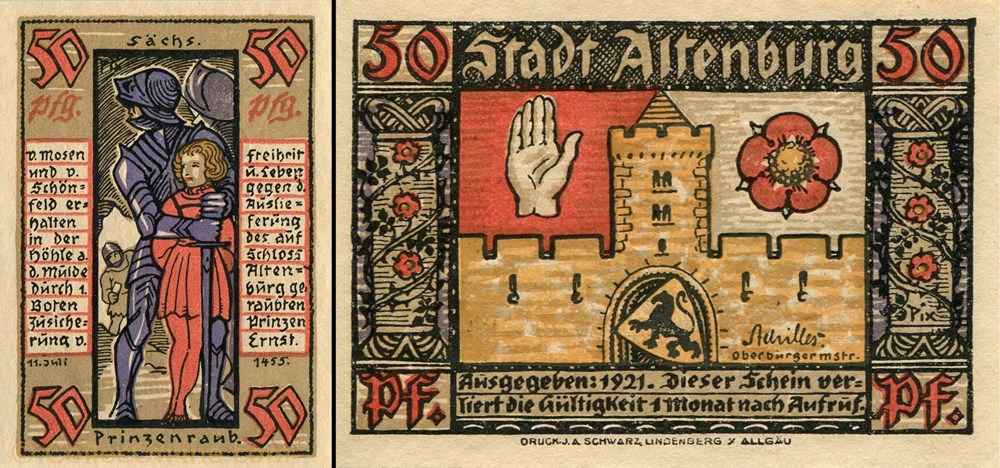 50 50
Sächs.
Pfg. Pfg.
v. Mosen
und v.
Schön=
feld er=
halten
in der
Höhle a.
d. Mulde
durch 1.
Boten
Zusiche=
rung v.
11. Juli
Freiheit
u. Leben
gegen d.
Auslie=
ferung
des auf
Schloss
Alten=
burg ge
raubten
Prinzen
Ernst.
1455.
50 50
Prinzenraub.
50 Stadt Altenburg 50
Pix
Oberbürgermstr.
Pf. Pf.
Ausgegeben: 1921. Dieser Schein ver=
liert die Gültigkeit 1 Monat nach Aufruf.
DRUCK-J.A SCHWARZ, LINDENBERG / ALLGÄU